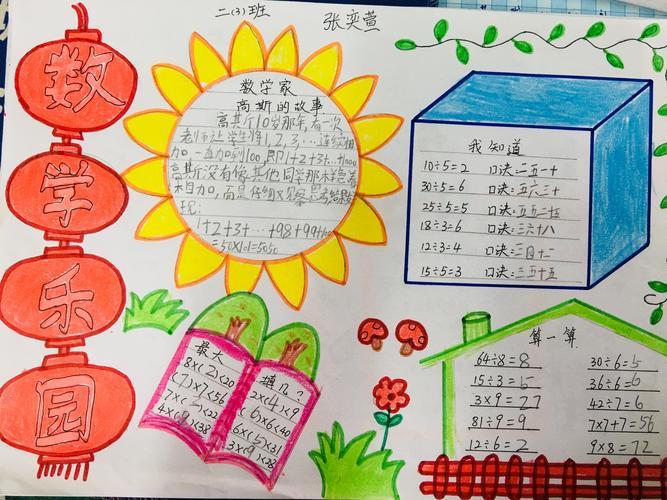 二(3)班
张奕萱
数学乐园
数学家
高斯的故事
高其斤10岁那年,有一次
老师让学生将1,2,3,…连续相
加一直加到100,即1+2+3+…+100
高斯没有像其他同学那末急着
相加,而是仔细观察思考
现:
1+2+3+…+98+99+100
=50×101=5050
我知道
10÷5=2 口诀:二五一十
30÷5=6 口诀:五六三十
25÷5=5 口诀:五五二十五
18÷3=6 口诀:三六十八
12÷3=4 口诀:三四十二
15÷5=3 口诀:三五十五
最大
8×(2)<20
(7)×7<56
7×(3)<22
4×(9)<38
填几?
2×(4)<9
(6)×6<40
6×(5)<31
3×(9)<28
算一算
64÷8=8 30÷6=5
15÷3=5 36÷6=6
3×9=27 42÷7=6
81÷9=9 7×7+7=56
12÷6=2 9×8=72